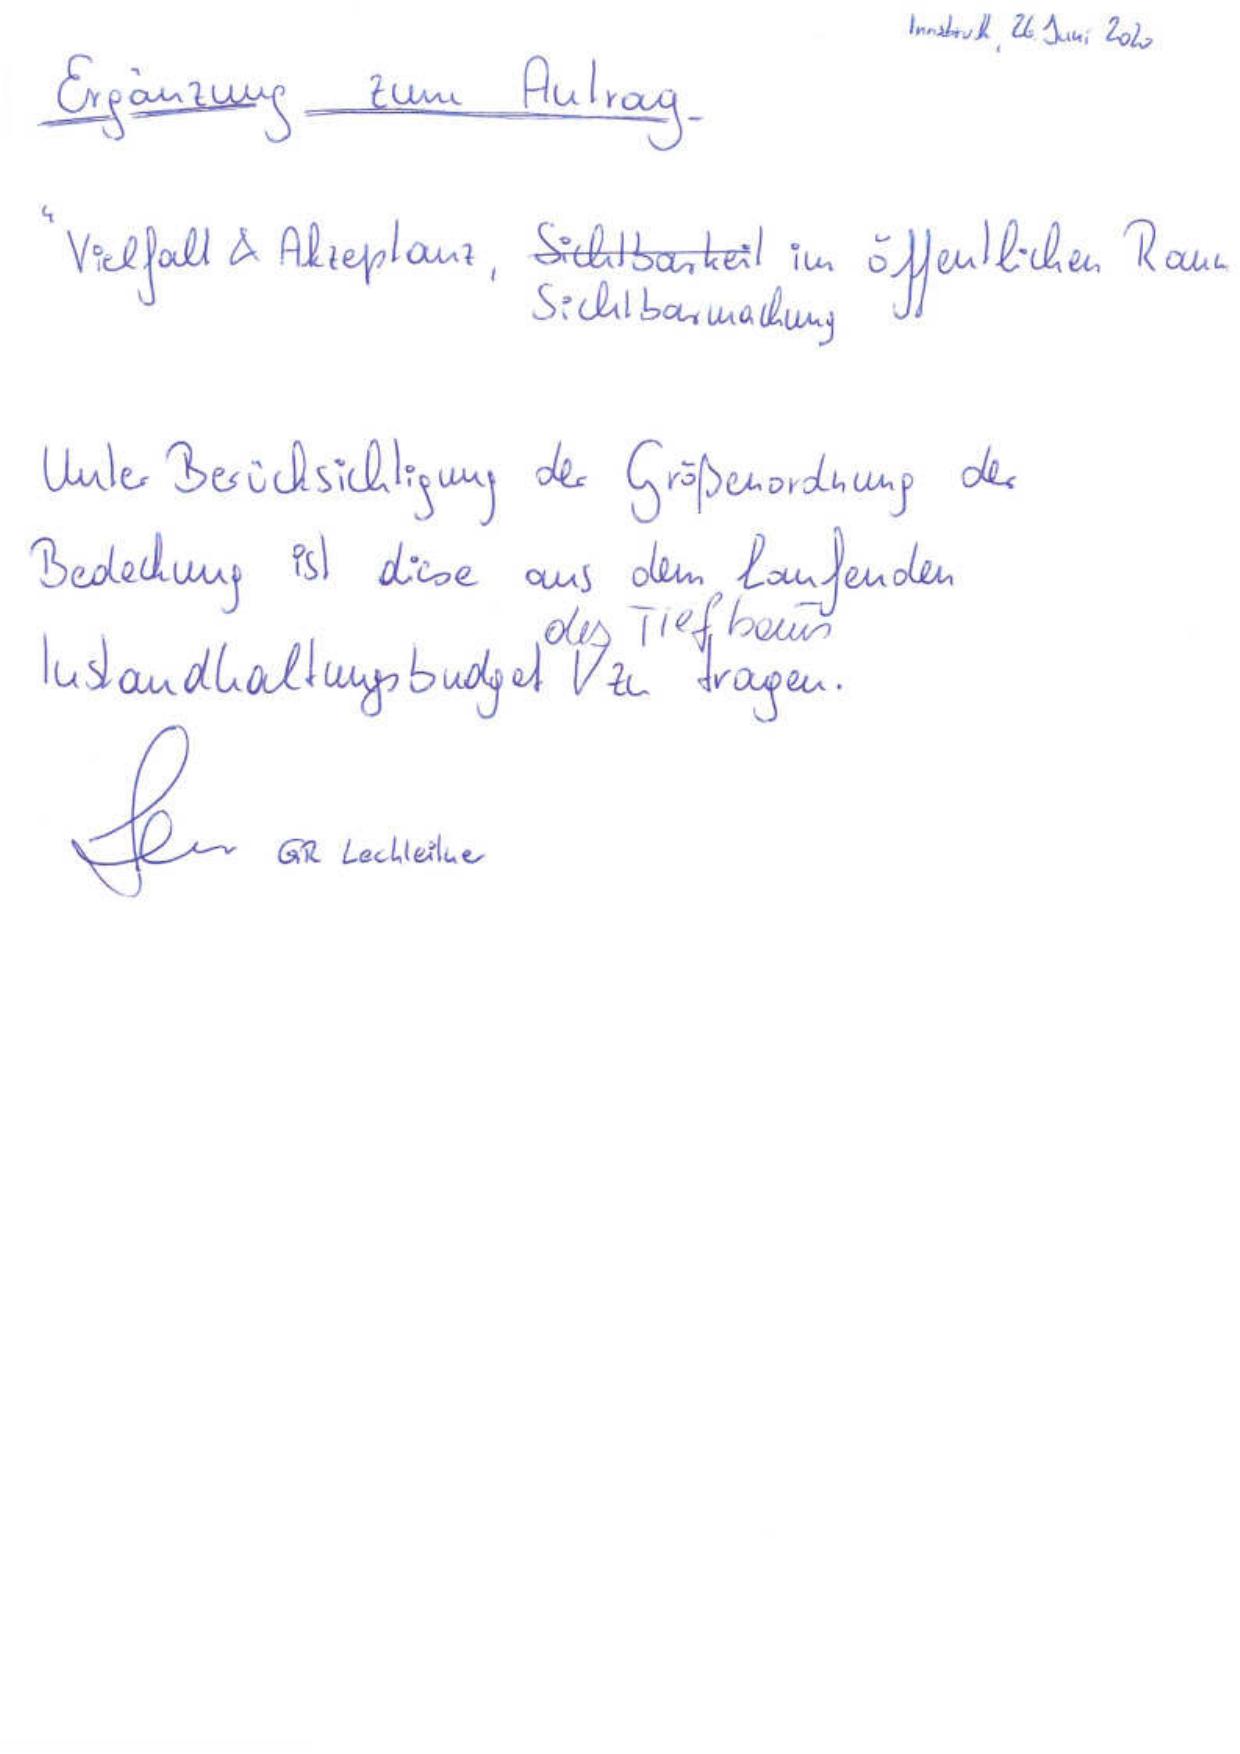 Innsbruck, 26. Juni 2020
Ergänzung zum Antrag
"Vielfalt & Akzeptanz, Sichtbarkeit im öffentlichen Raum
Sichtbarmachung
Unter Berücksichtigung der Größenordnung der
Bedeckung ist diese aus dem laufenden
des Tiefbaus
Instandhaltungsbudget V zu tragen.
GR Lechleitner